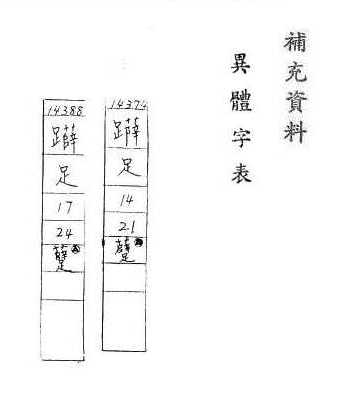 補充資料
異體字表
14374
足
14
21
14388
足
17
24
躠